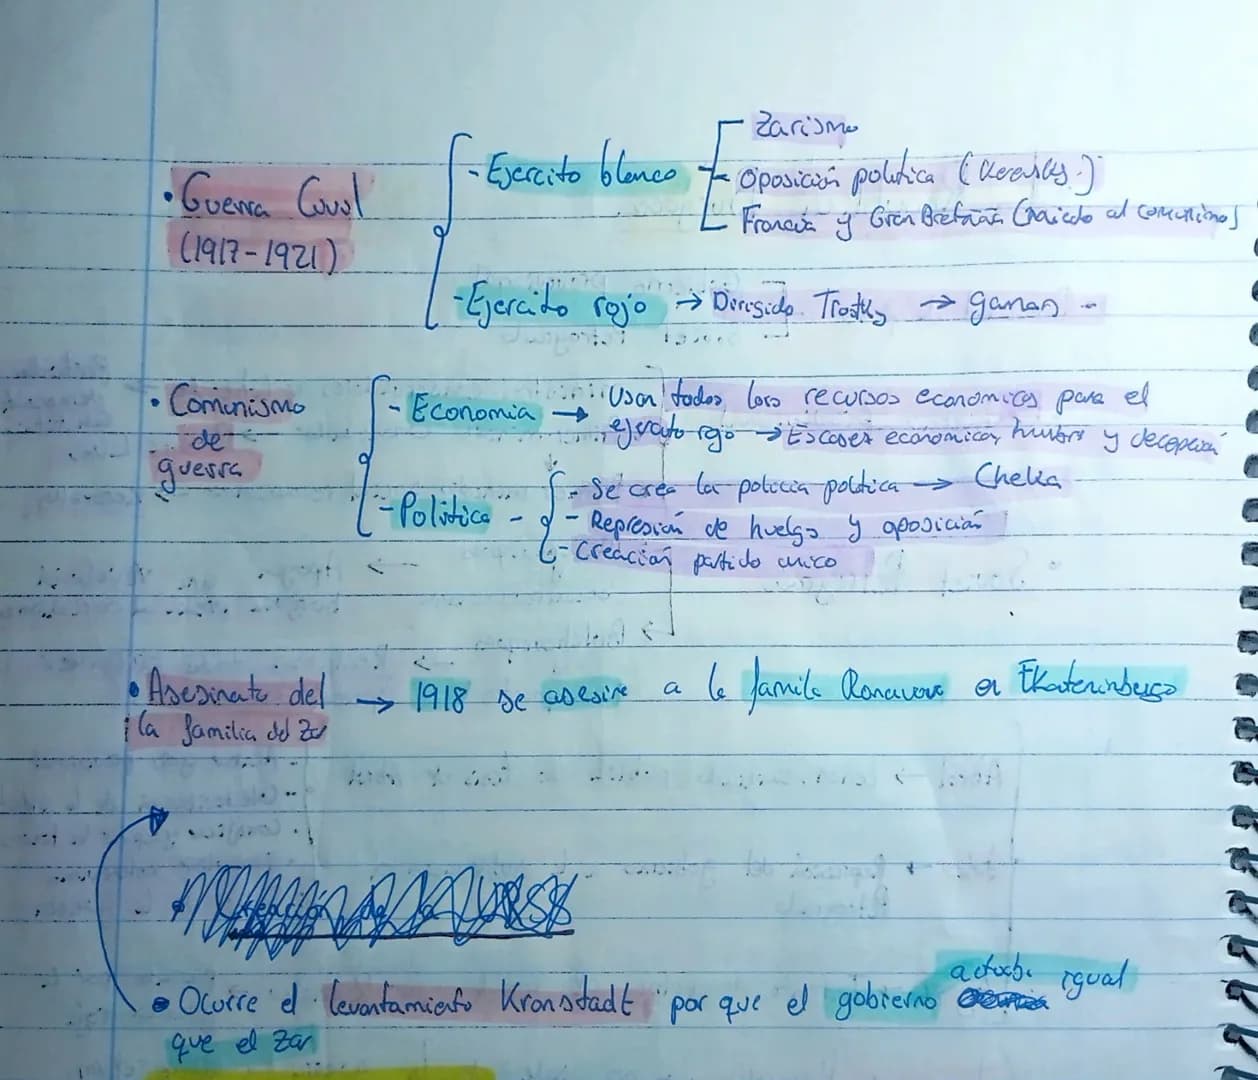 Zarismo
- Ejercito blanco
Oposición politica (Kerensky.)
• Guerra Civil
Francia y Gran Bretaña (miedo al comunismo)
(1917-1921)
- Ejercito rojo → Dirigido Trotky → ganan
• Comunismo
de
guerra
- Economia → Usan todos los recursos economicos para el
ejercito rojo → Escases economica, hambre y decepción
- Politica -
- Se crea la policia politica → Cheka
- Represión de huelgo y oposición
- Creación partido unico
• Asesinato del → 1918 se asesine a la familia Romanov en Ekaterinburgo
la familia del Zar
actuaba igual
• Ocurre el levantamiento Kronstadt por que el gobierno
que el Zar